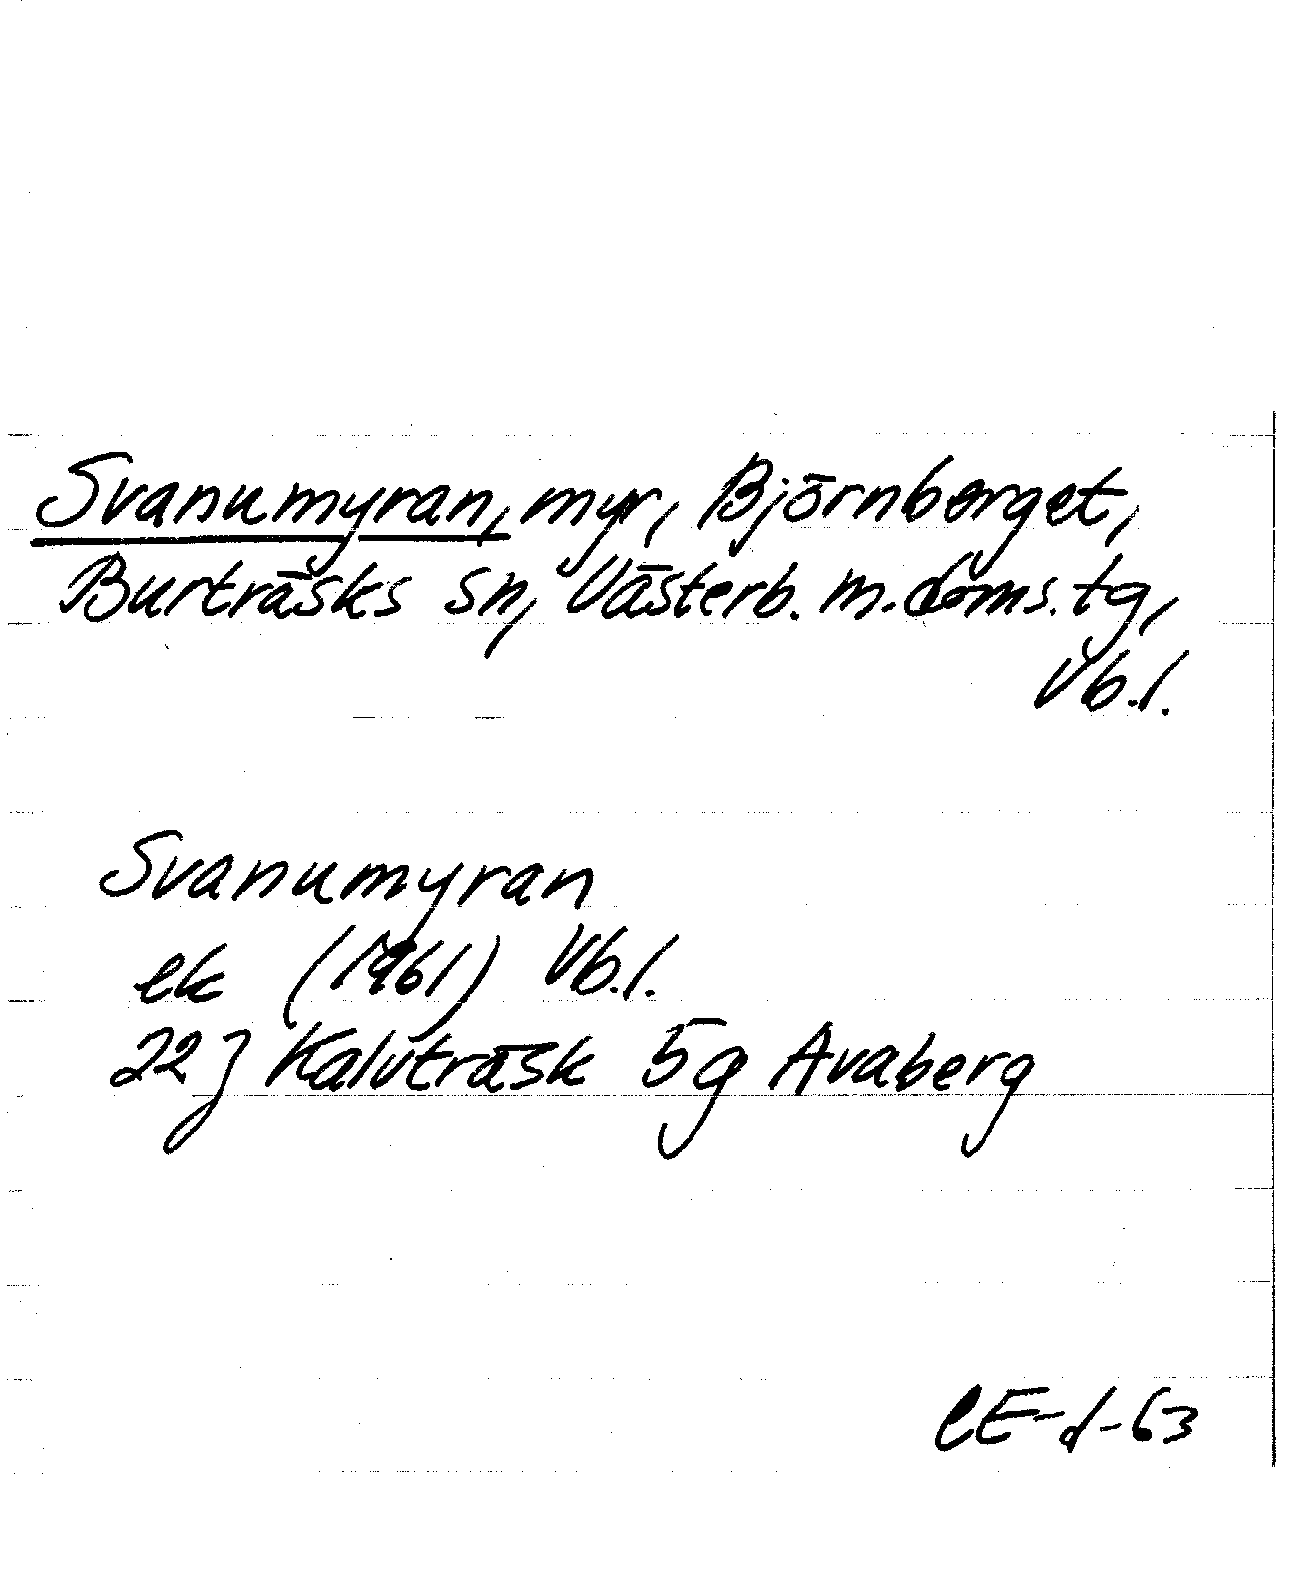 Svanumyran, myr, Björnberget,
Burträsks sn, Västerb. m. doms. tg,
Vb. l.
Svanumyran
ek (1961) Vb. l.
22 J Kalvträsk 5g Avaberg
CE-d-63